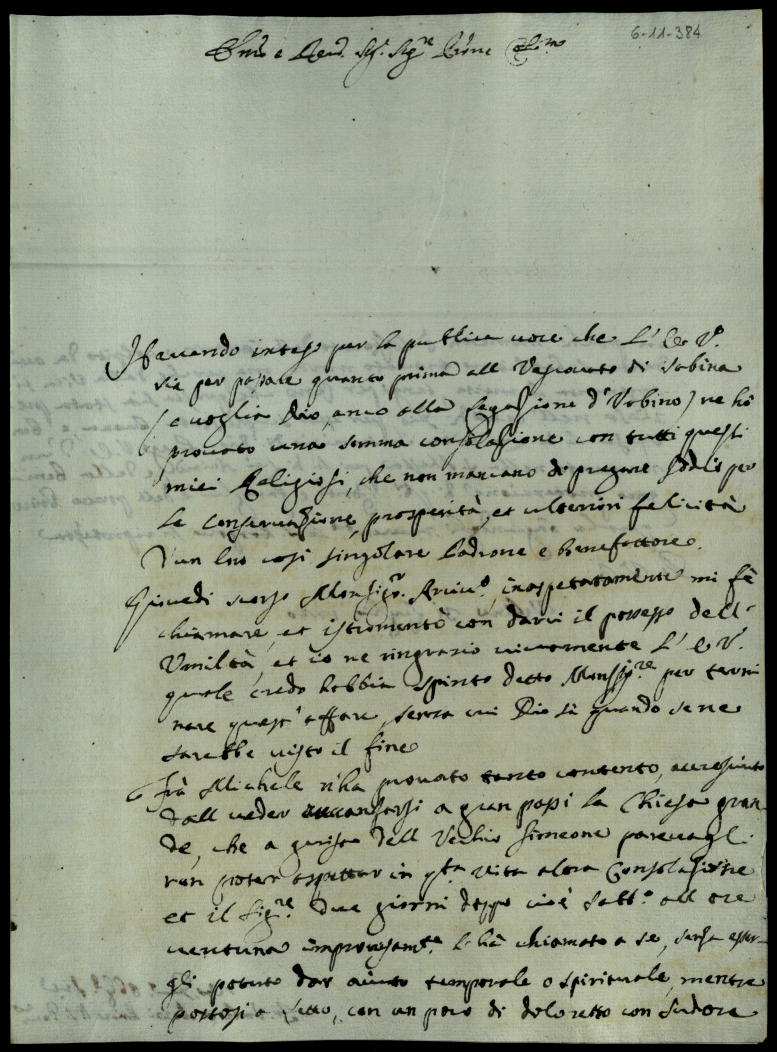 6-11-384
Em.o e Rev. Sig. Sig.re Prone Col.mo
Havendo inteso per la publica voce che L' E. V.
sia per passare quanto prima all Vescovato di Sabina
(e voglia Dio, anco alla Legazione d'Urbino) ne hò
provato una somma consolazione con tutti questi
miei Religiosi, che non mancano di pregare Iddio per
la conservazione, prosperità, et ulteriori felicità
d'un suo così singolare Padrone e Benefattore.
Giovedi scorso Monsig.r Arciv.o inaspetatamente mi fè
chiamare, et istromentò con darci il possesso dell'
Umiltà, et io ne ringrazio vivamente L' E. V.
quale credo habbia spinto detto Monsig.re per termi
nare quest' affare, senza cui Dio sà quando se ne
sarebbe visto il fine
Frà Michele n'ha provato tanto contento, accresciuto
dall veder avanzarsi a gran passi la Chiesa gran
de, che a guisa dell Vechio Simeone parevagli
non poter aspettar in q.ta vita altra Consolazione
et il Sig.re due giorni doppo cioè Sabb.o all ore
ventuna improvisam.te l'hà chiamato a se, senza esser
gli potuto dar aiuto temporale o spirituale, mentre
postosi a letto, con un poco di doloretto con sudore